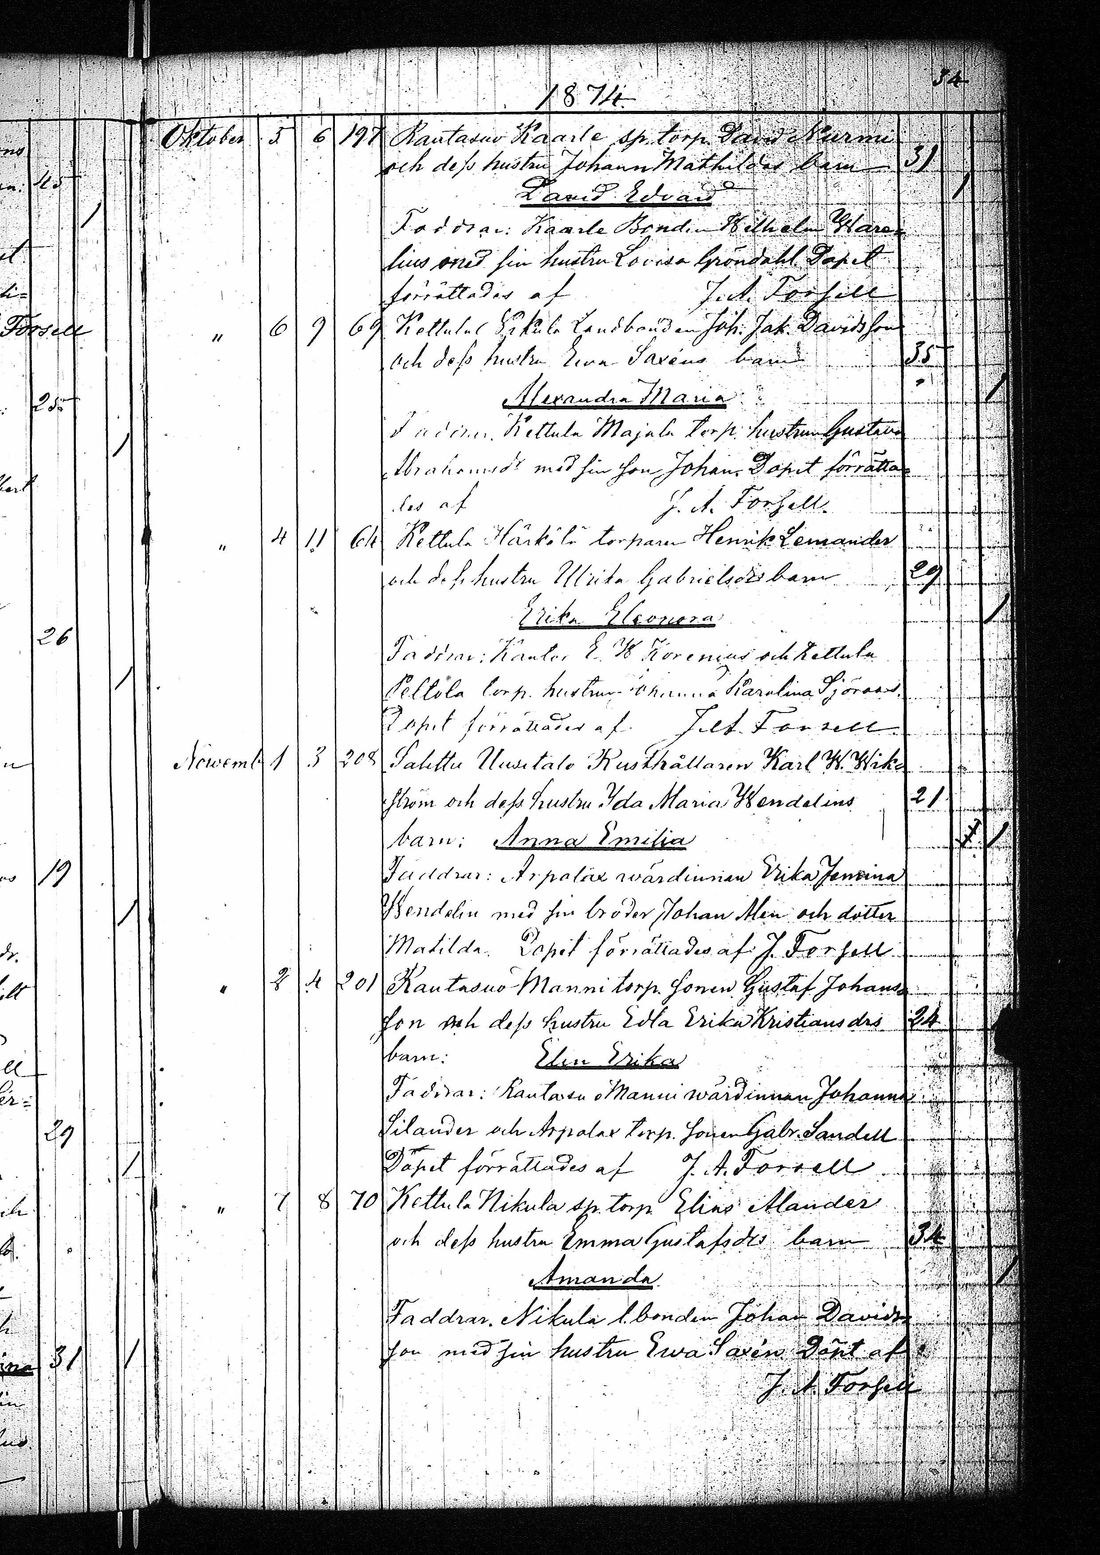 34
1874
Oktober 5 6 197 Rautasuo Kaarle sp. torp. David Nurmi
och dess hustru Johann Mathildas barn 31
David Edvard 1
Faddrar: Kaarle Bonden Wilhelm Ware=
lius med sin hustru Lovisa Gröndahl Dopet
förrättades af J. A. Forsell
" 6 9 69 Kettula Erkula Landbonden Joh. Jak. Davidsson
och dess hustru Ewa Saxéns barn 35
Alexandra Maria 1
Faddrar. Kettula Majala torp. hustrun Gustava
Abrahamsdr med sin son Johan. Dopet förrätta=
des af J. A. Forsell.
" 4 11 64 Kettula Härkälä torparen Henrik Lemander
och dess hustru Ulrika Gabrielsdrs barn 29
Erika Eleonora 1
Faddrar: Kantor E. W. Korenius och Kettula
Peltola torp. hustrun Johanna Karolina Sjöroos.
Dopet förrättades af J. A. Forsell
Novemb 1 3 208 Salittu Uusitalo Rusthållaren Karl W. Wik=
ström och dess hustru Ida Maria Wendelins 21
barn: Anna Emilia 1
Faddrar: Arpalax wärdinnan Erika Jemina
Wendelin med sin broder Johan Alen och dotter
Matilda. Dopet förrättades af J. Forsell
" 2 4 201 Rautasuo Manni torp. sonen Gustaf Johans=
son och dess hustru Edla Erika Kristiansdrs 24
barn: Elin Erika
Faddrar: Rautasuo Manni wärdinnan Johanna
Silander och Arpalax torp. sonen Gabr. Sandell
Dopet förrättades af J. A. Forsell
" 7 8 70 Kettula Nikula sp. torp. Elias Alander
och dess hustru Emma Gustafsdrs barn 34
Amanda 1
Faddrar. Nikula l. bonden Johan Davids=
son med sin hustru Ewa Saxén Döpt af
J. A. Forsell